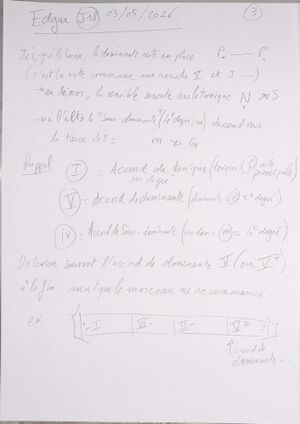 Edgar J18 03/05/2026 3
Ici, la basse, la dominante reste en place P. — P.
(c'est la note commune aux accords V et I ....)
→ au ténor, la sensible monte vers la tonique N → S
→ à l'alto la "sous-dominante" (4e degré: m) descend vers
la tierce de I = m → G
Rappel I = Accord de tonique (tonique = S note principale)
1er degré
V = Accord de dominante (dominante = P 5e degré)
IV = Accord de Sous-dominante (sous dom = m = 4e degré)
On trouve souvent l'accord de dominante V (ou V7)
à la fin, avant que le morceau ne recommence...
ex I VI II V7
↑ accord de
dominante...